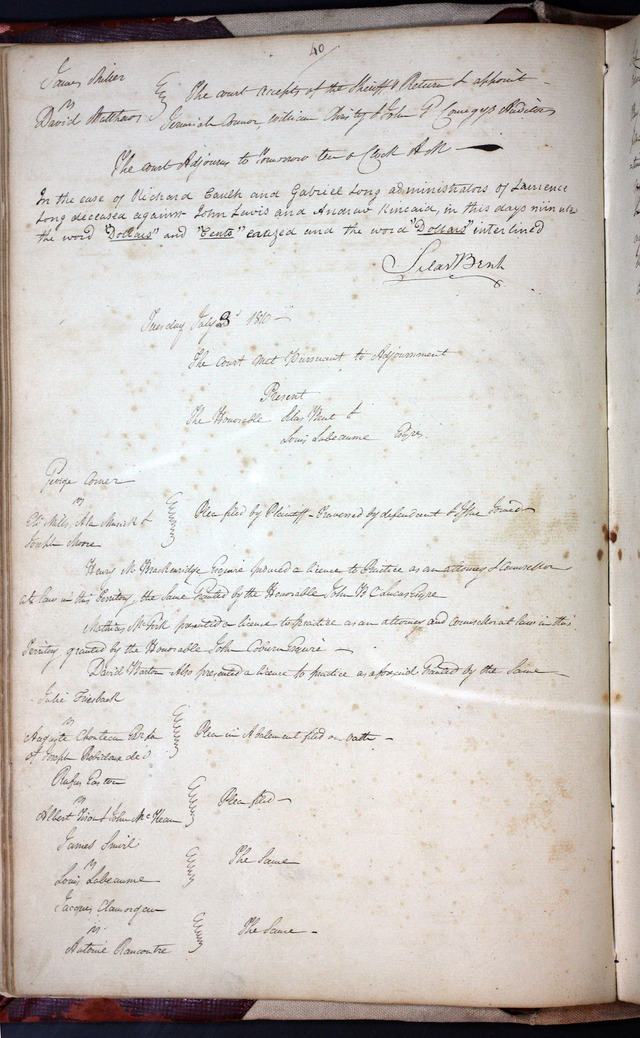 40
James Miller
vs
David Matthews
The court accepts of the Sheriff's Return & appoint
Jeremiah Connor, William Christy & John G Comegys Auditors
The court Adjourns to Tomorrow ten o Clock AM
In the case of Richard Caulk and Gabriel Long administrators of Laurence
Long deceased against John Lewis and Andrew Kincaid, in this days minute
the word "Dollars" and "Cents" erazed and the word "Dollars" interlined
Silas Bent
Tuesday July 3d 1810
The court met Pursuant to Adjournment
Present
The Honorable Silas Bent &
Louis Labeaume Esqrs
George Corner
vs
Eli Mills, Ala Musick &
Joseph Moore
Plea filed by Plaintiff - Traversed by defendant & Issue Joined
Henry M Brackenridge Esquire a licence to Practice as an attorney & Counsellor
at law in this Territory, the same Granted by the Honorable John B C Lucas Esqre
Mathias McGirk presented a license to practice as an attorney and counsellor at law in this
Territory granted by the Honorable John Coburn Esquire
David Barton Also presented a licence to practice as aforesaid Granted by the Same
Julie
vs
Auguste Chouteau Exr
of Joseph Robidoux decd
Plea in Abatement filed on oath
Rufus Easton
vs
Albert Tison & John McKean
Plea filed
James
vs
Louis Labeaume
The Same
Jacques Clamorgan
vs
Antoine Rancontre
The Same